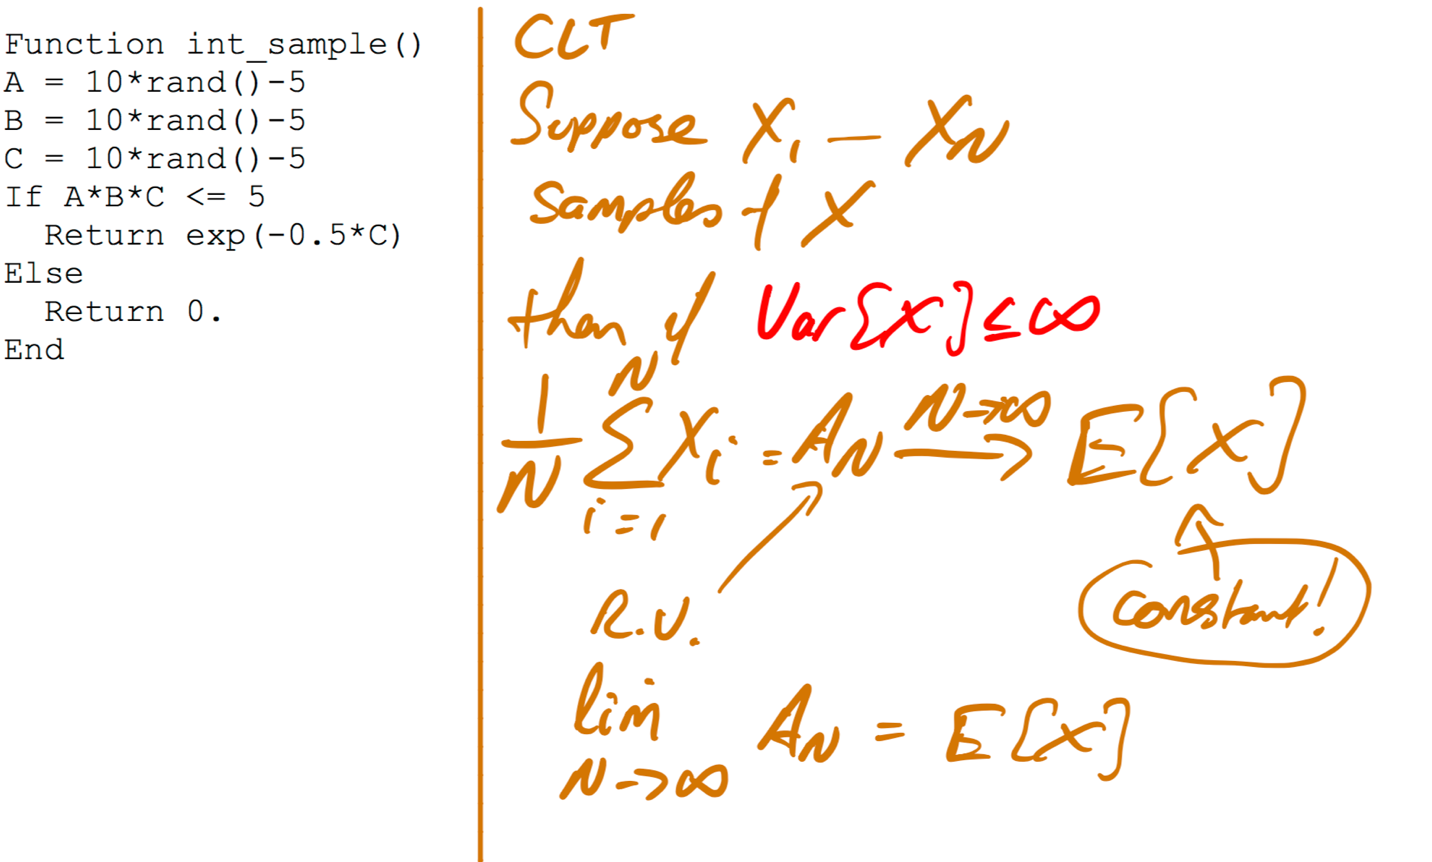 Function int_sample()
A = 10*rand()-5
B = 10*rand()-5
C = 10*rand()-5
If A*B*C <= 5
Return exp(-0.5*C)
Else
Return 0.
End
CLT
Suppose X₁ — X_N
samples of X
then if Var[X] ≤ ∞
1/N ∑_{i=1}^{N} X_i = A_N →^{N→∞} E[X]
R.V.
constant!
lim_{N→∞} A_N = E[X]